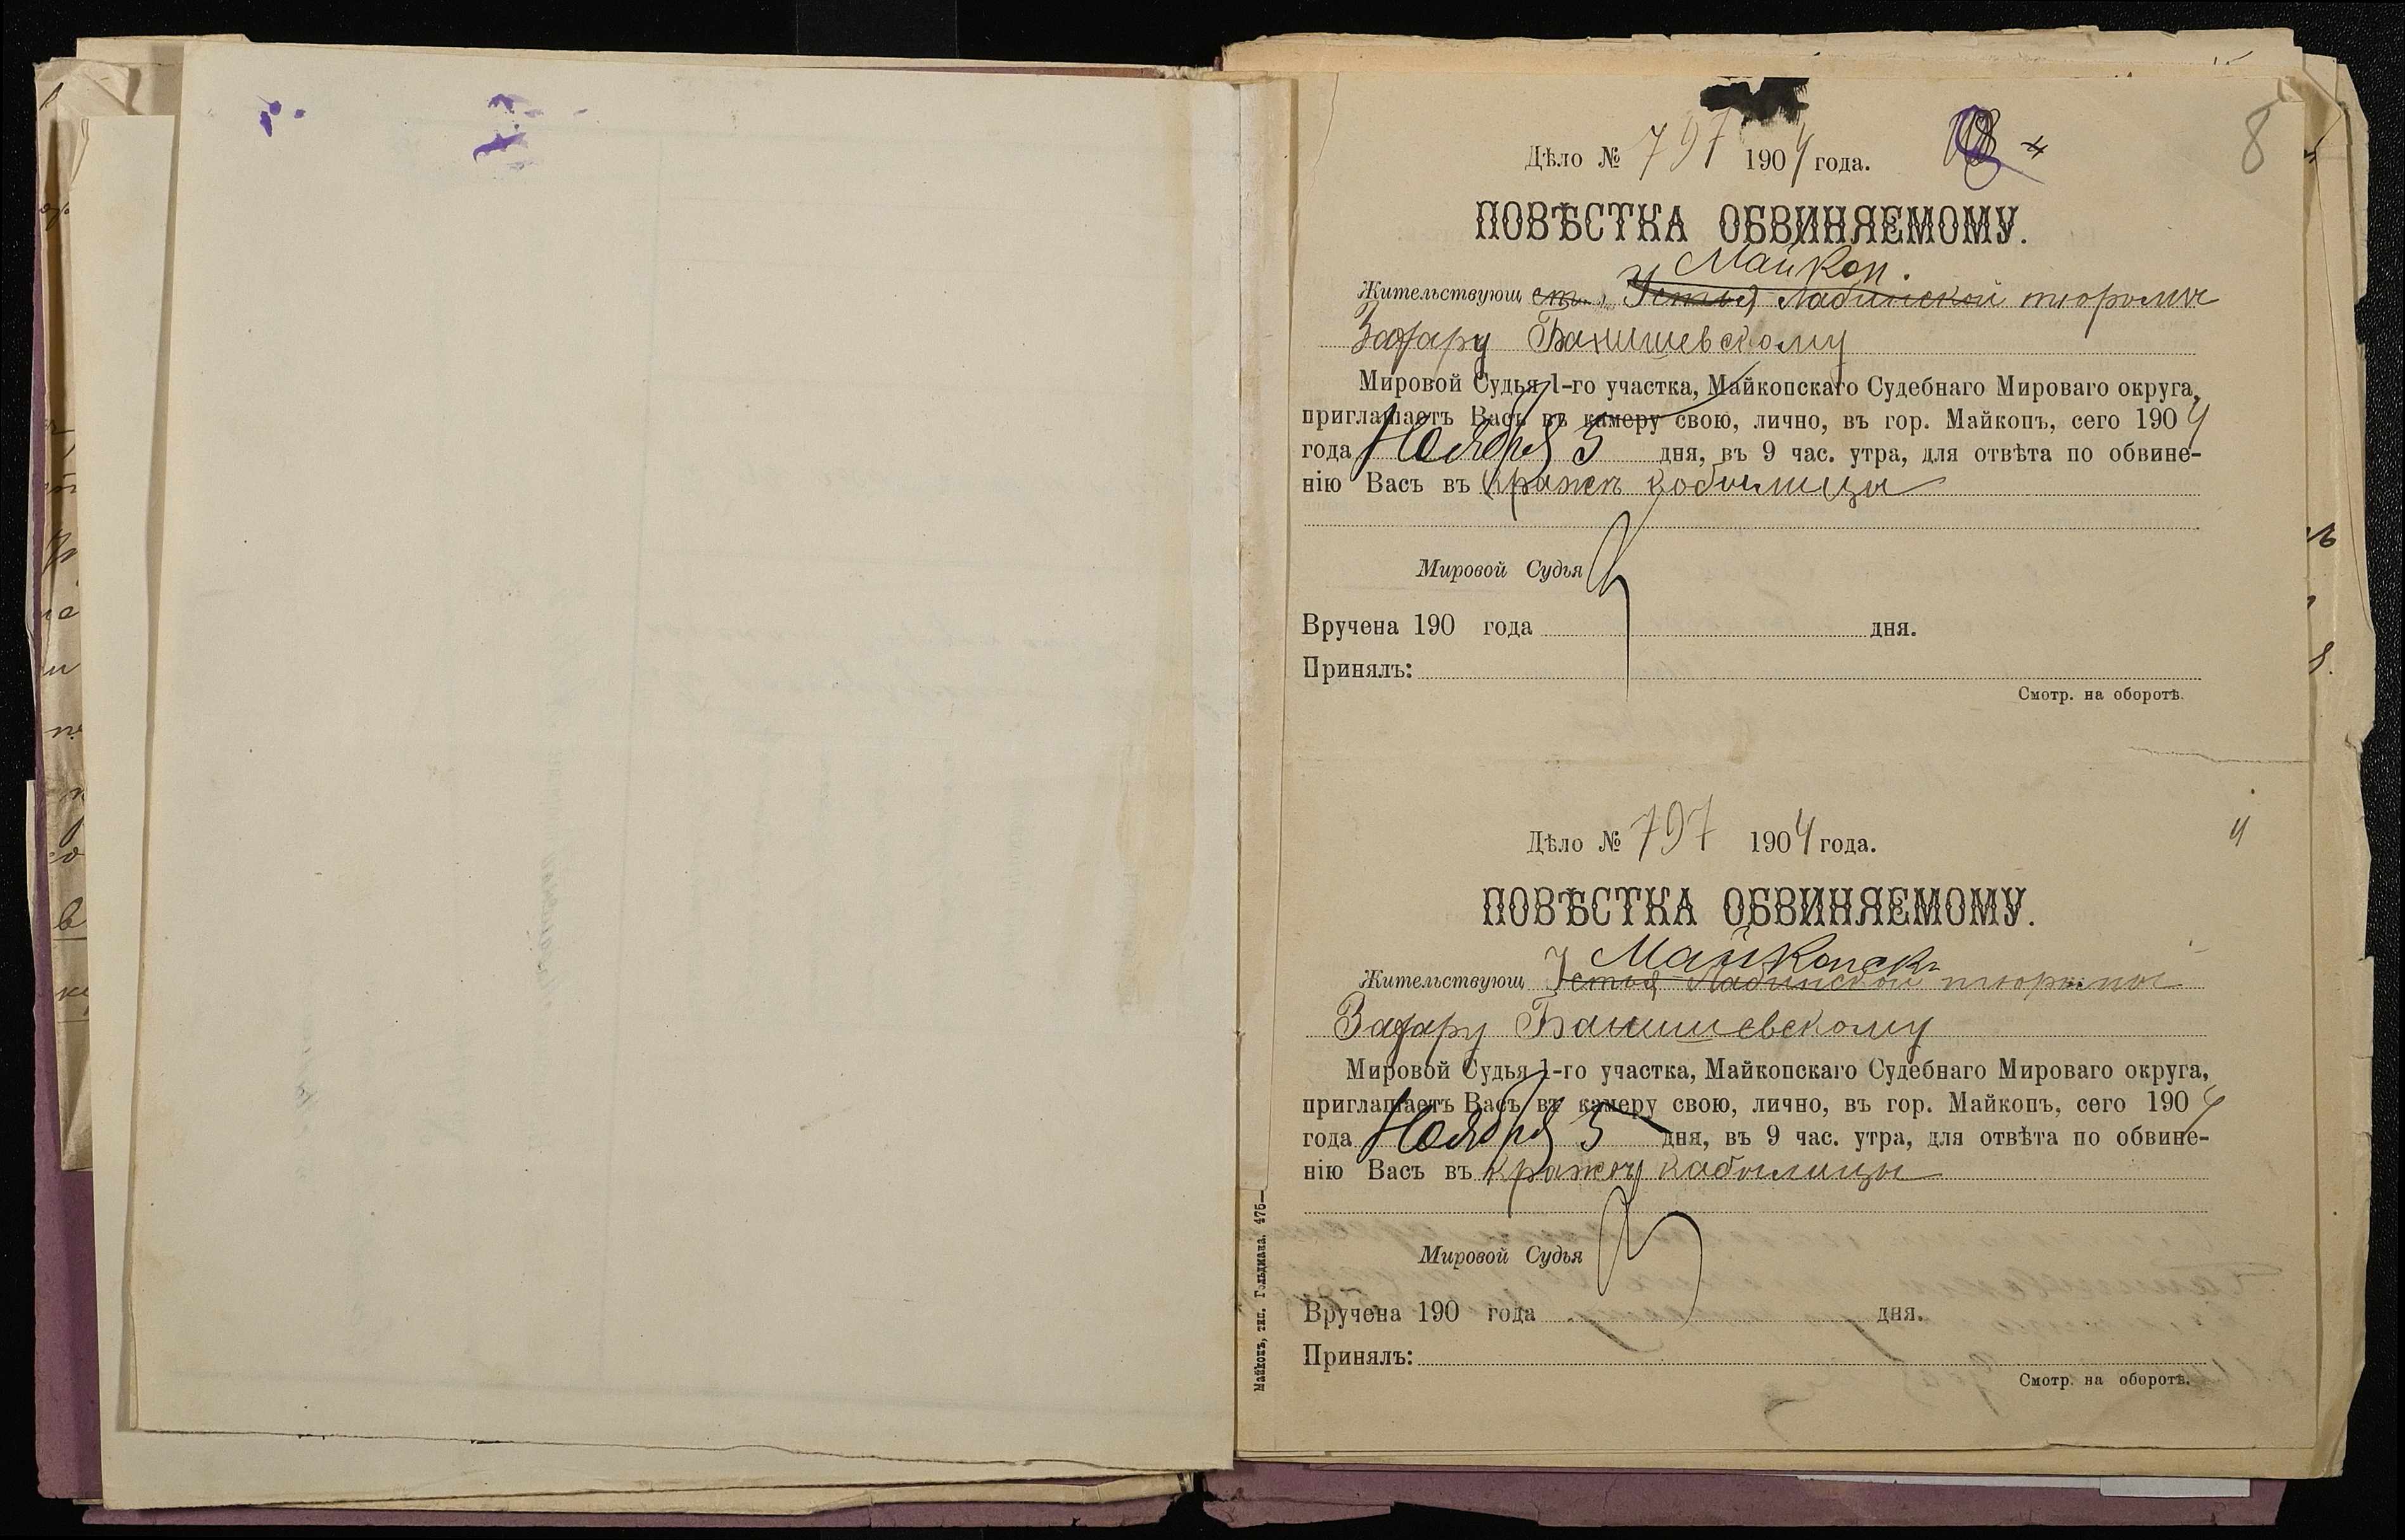 8
Дѣло № 797 1904 года.
ПОВѢСТКА ОБВИНЯЕМОМУ.
Майкоп.
Жительствующ ст. Устья Лабинской тюрьмы
Захару Банишевскому
Мировой Судья 1-го участка, Майкопскаго Судебнаго Мироваго округа,
приглашаетъ Васъ въ камеру свою, лично, въ гор. Майкопъ, сего 1904
года Ноября 5 дня, въ 9 час. утра, для отвѣта по обвине-
нію Васъ въ кражѣ кобылицы
Мировой Судья
Вручена 190 года дня.
Принялъ:
Смотр. на оборотѣ.
Дѣло № 797 1904 года.
ПОВѢСТКА ОБВИНЯЕМОМУ.
Майкопск
Жительствующ Устья Лабинской тюрьмы
Захару Банишевскому
Мировой Судья 1-го участка, Майкопскаго Судебнаго Мироваго округа,
приглашаетъ Васъ въ камеру свою, лично, въ гор. Майкопъ, сего 1904
года Ноября 5 дня, въ 9 час. утра, для отвѣта по обвине-
нію Васъ въ кражѣ кабылицы
Мировой Судья
Вручена 190 года дня.
Принялъ:
Смотр. на оборотѣ.
Майкопъ, тип. Гольдмана. 475—